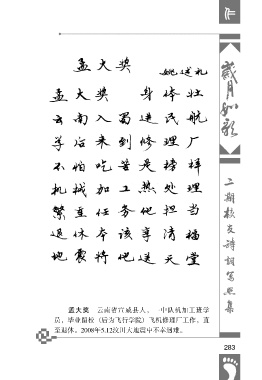 作
岁月如歌
二期校友诗词写照集
孟大奖
姚送礼
孟大奖 身体壮
云南入蜀进民航
学活来到修理厂
不怕吃苦是榜样
机械加工热处理
繁重任务他担当
退休本该享清福
地震将他送天堂
孟大奖 云南省宣威县人。一中队机加工班学
员，毕业留校（后为飞行学院）飞机修理厂工作，直
至退休。2008年5.12汶川大地震中不幸遇难。
283